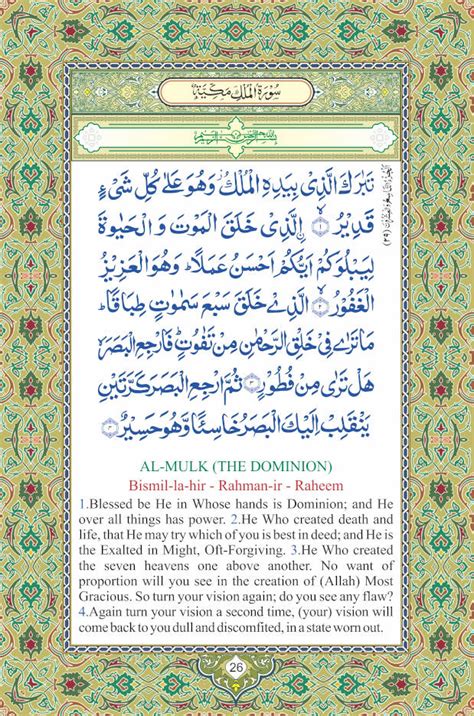 سُوْرَةُ الْمُلْكِ مَكِّيَّةٌ
بِسْمِ اللهِ الرَّحْمٰنِ الرَّحِيْمِ
تَبٰرَكَ الَّذِيْ بِيَدِهِ الْمُلْكُ وَهُوَ عَلٰى كُلِّ شَيْءٍ
قَدِيْرُ ۝١ اِلَّذِيْ خَلَقَ الْمَوْتَ وَ الْحَيٰوةَ
لِيَبْلُوَكُمْ اَيُّكُمْ اَحْسَنُ عَمَلًا ؕ وَهُوَ الْعَزِيْزُ
الْغَفُوْرُ ۝٢ الَّذِيْ خَلَقَ سَبْعَ سَمٰوٰتٍ طِبَاقًا ؕ
مَا تَرٰى فِيْ خَلْقِ الرَّحْمٰنِ مِنْ تَفٰوُتٍ ؕ فَارْجِعِ الْبَصَرَ
هَلْ تَرٰى مِنْ فُطُوْرٍ ۝٣ ثُمَّ ارْجِعِ الْبَصَرَ كَرَّتَيْنِ
يَنْقَلِبْ اِلَيْكَ الْبَصَرُ خَاسِئًا وَّهُوَ حَسِيْرٌ ۝٤
AL-MULK (THE DOMINION)
Bismil-la-hir - Rahman-ir - Raheem
1.Blessed be He in Whose hands is Dominion; and He
over all things has power. 2.He Who created death and
life, that He may try which of you is best in deed; and He is
the Exalted in Might, Oft-Forgiving. 3.He Who created
the seven heavens one above another. No want of
proportion will you see in the creation of (Allah) Most
Gracious. So turn your vision again; do you see any flaw?
4.Again turn your vision a second time, (your) vision will
come back to you dull and discomfited, in a state worn out.
26